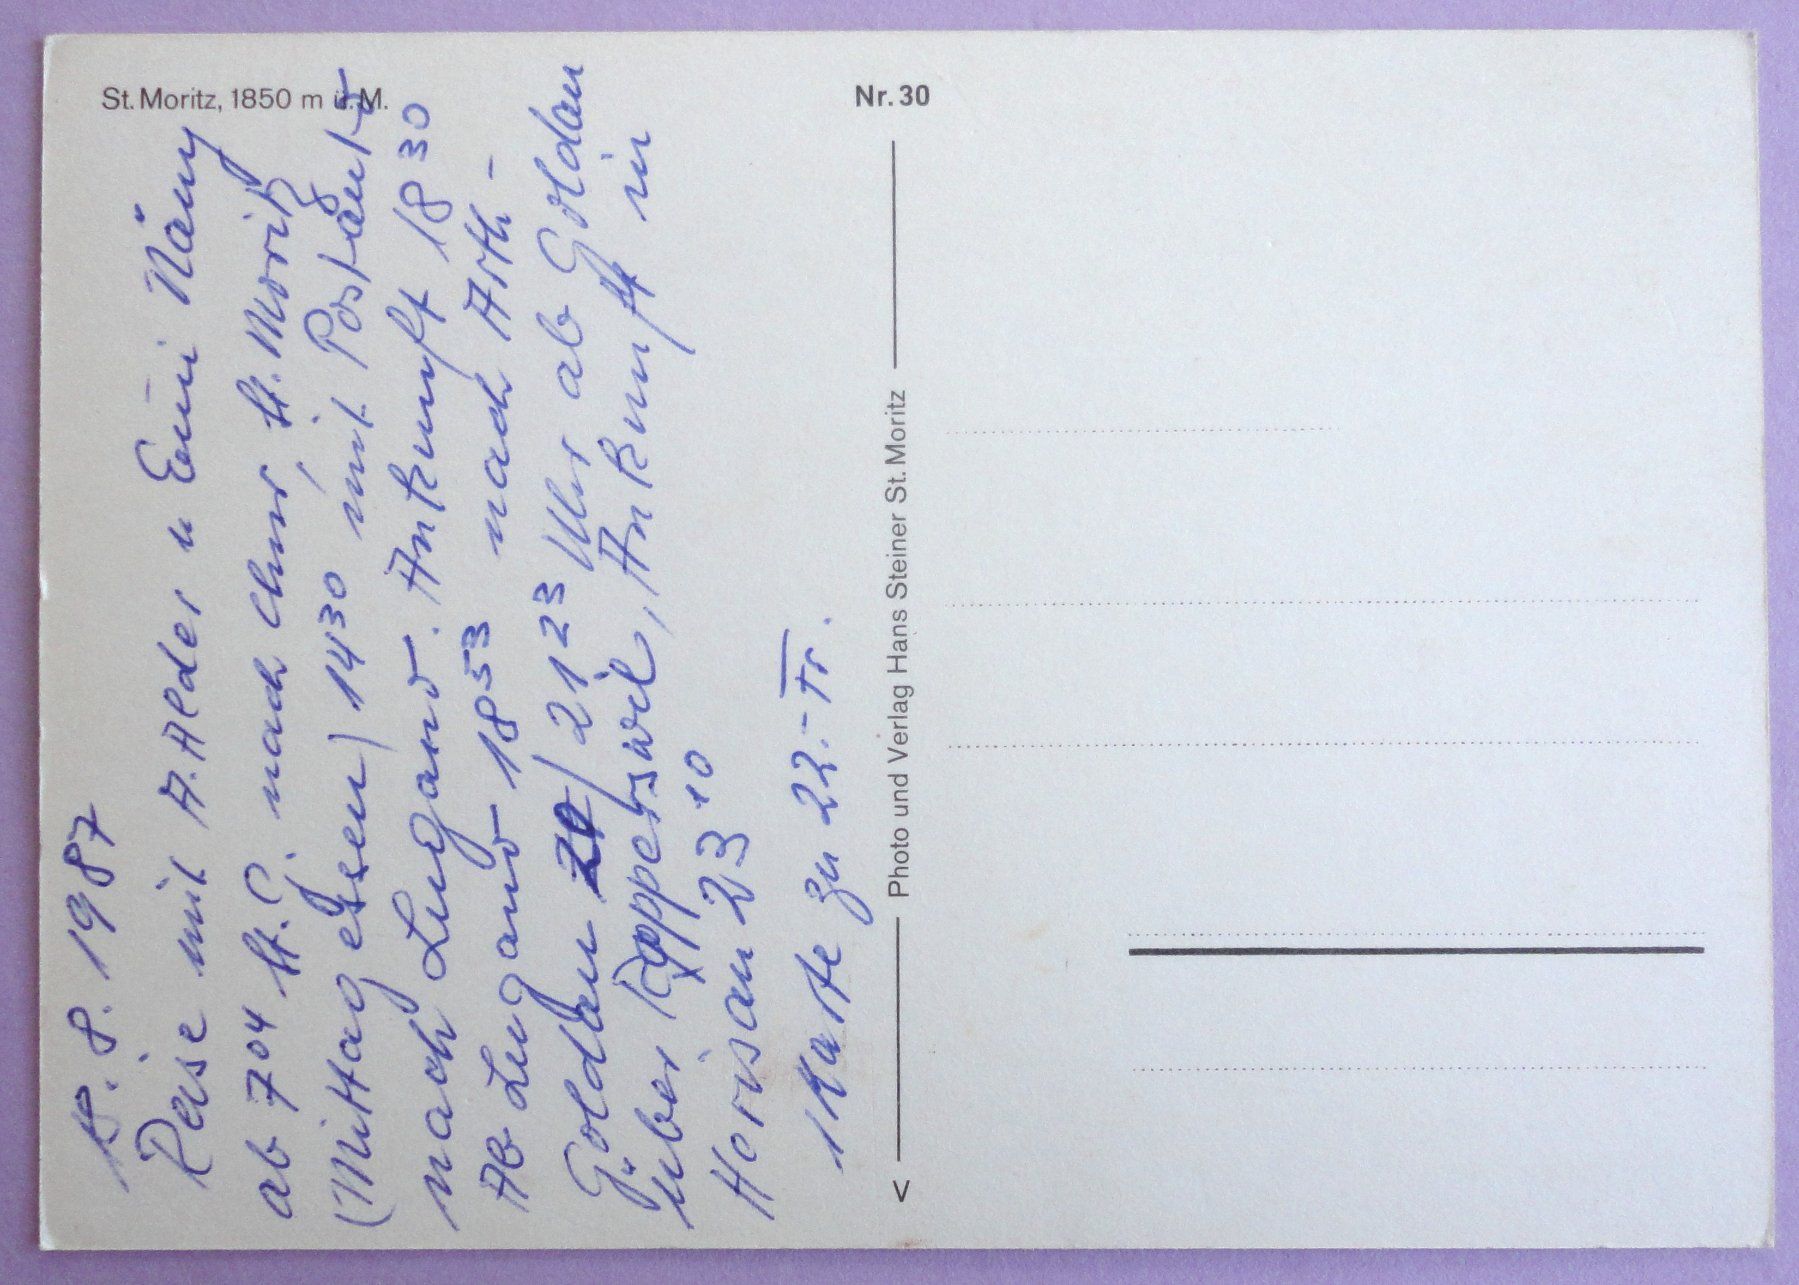 St. Moritz, 1850 m ü. M.
Nr. 30
8. 1987
Reise mit A. Alder u Emmi Nämy
ab 7 04 St. C. nach Chur, St. Moritz
(Mittagessen) 14 30 mit Postauto
nach Lugano. Ankunft 18 30
Ab Lugano 18 53 nach Arth-
Goldau / 21 23 Uhr ab Goldau
über Rapperswil, Ankunft in
Herisau 23 10
1 Karte zu 22.- Fr.
Photo und Verlag Hans Steiner St. Moritz